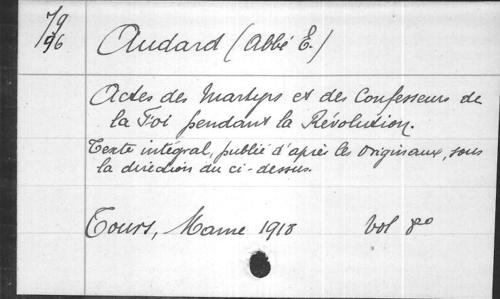 79
96
Audard (Abbé E.)
Actes des Martyrs et des Confesseurs de
la Foi pendant la Révolution.
Texte intégral, publié d'après les originaux, sous
la direction du ci-dessus.
Tours, Mame 1918 Vol 8º